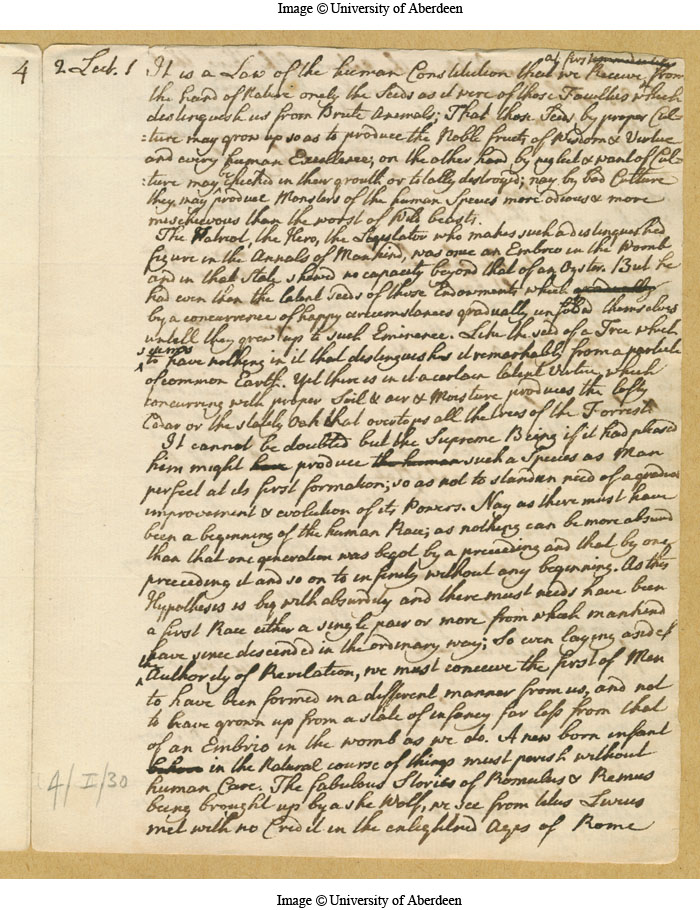 Image © University of Aberdeen
4
2 Lect. 1
at first immediately
It is a Law of the human Constitution that we Receive from
the hand of Nature onely the Seeds as it were of those Faculties which
destinguish us from Brute Anemals; That these Seeds by proper Cul-
:ture may grow up so as to produce the Noble fruits of Wisdom & Virtue
and every human Excellence; on the other hand by neglect & want of Cul-
:ture may be checked in their grouth or totally destroyed; nay by bad Culture
they may produce Monsters of the human Species more odious & more
mischievous than the worst of Wild beasts.
The Patriot, the Hero, the Legislator who makes such a destinguished
figure in the Annals of Mankind, was once an Embrio in the womb
and in that State shewed no capacity beyond that of an Oyster. But he
had even then the latent seeds of those Endowments which gradually
by a concurrence of happy circumstances gradually unfolded themselves
untill they grew up to such Eminence. Like the seed of a Tree which
seems
to have nothing in it that destinguishes it remarkably from a particle
of common Earth. Yet there is in it a certain latent Virtue, which
concurring with proper Soil & air & Moisture produces the lofty
Cedar or the stately Oak that overtops all the trees of the Forrest.
It cannot be doubted but the Supreme Being if it had pleased
him might have produce the human such a Species as Man
perfect at its first formation; so as not to stand in need of a gradual
improvement & evolution of its Powers. Nay as there must have
been a beginning of the human Race; as nothing can be more absurd
than that one generation was begot by a preceeding and that by one
preceeding it and so on to infinity without any beginning. As this
Hypothesis is big with absurdity and there must needs have been
a first Race either a single pair or more from which mankind
have since descended in the ordinary way; So even laying aside
the
Authority of Revelation, we must conceive the first of Men
to have been formed in a different manner from us, and not
to have grown up from a state of infancy far less from that
of an Embrio in the womb as we do. A new born infant
in the Natural course of things must perish without
human Care. The fabulous Stories of Romulus & Remus
being brought up by a she Wolf, we see from titus Livius
met with no Credit in the enlightned Ages of Rome
4/I/30
Image © University of Aberdeen